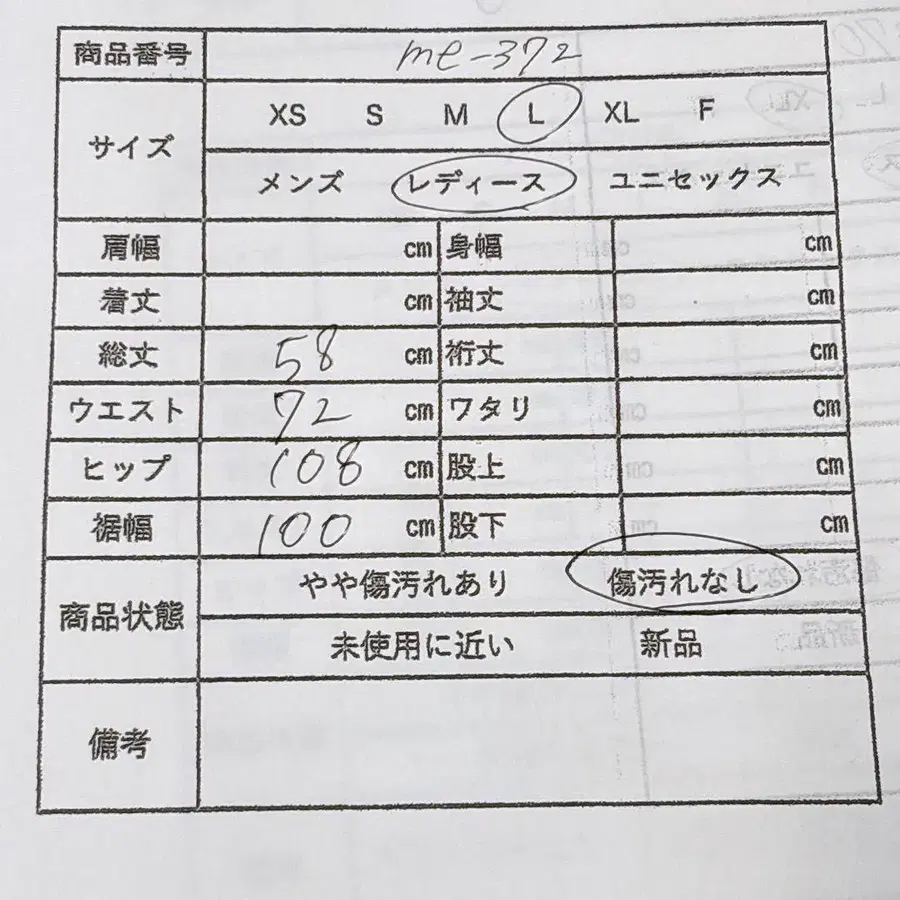 商品番号 me-372
サイズ XS S M L XL F
メンズ レディース ユニセックス
肩幅 cm 身幅 cm
着丈 cm 袖丈 cm
総丈 58 cm 裄丈 cm
ウエスト 72 cm ワタリ cm
ヒップ 108 cm 股上 cm
裾幅 100 cm 股下 cm
商品状態 やや傷汚れあり 傷汚れなし
未使用に近い 新品
備考